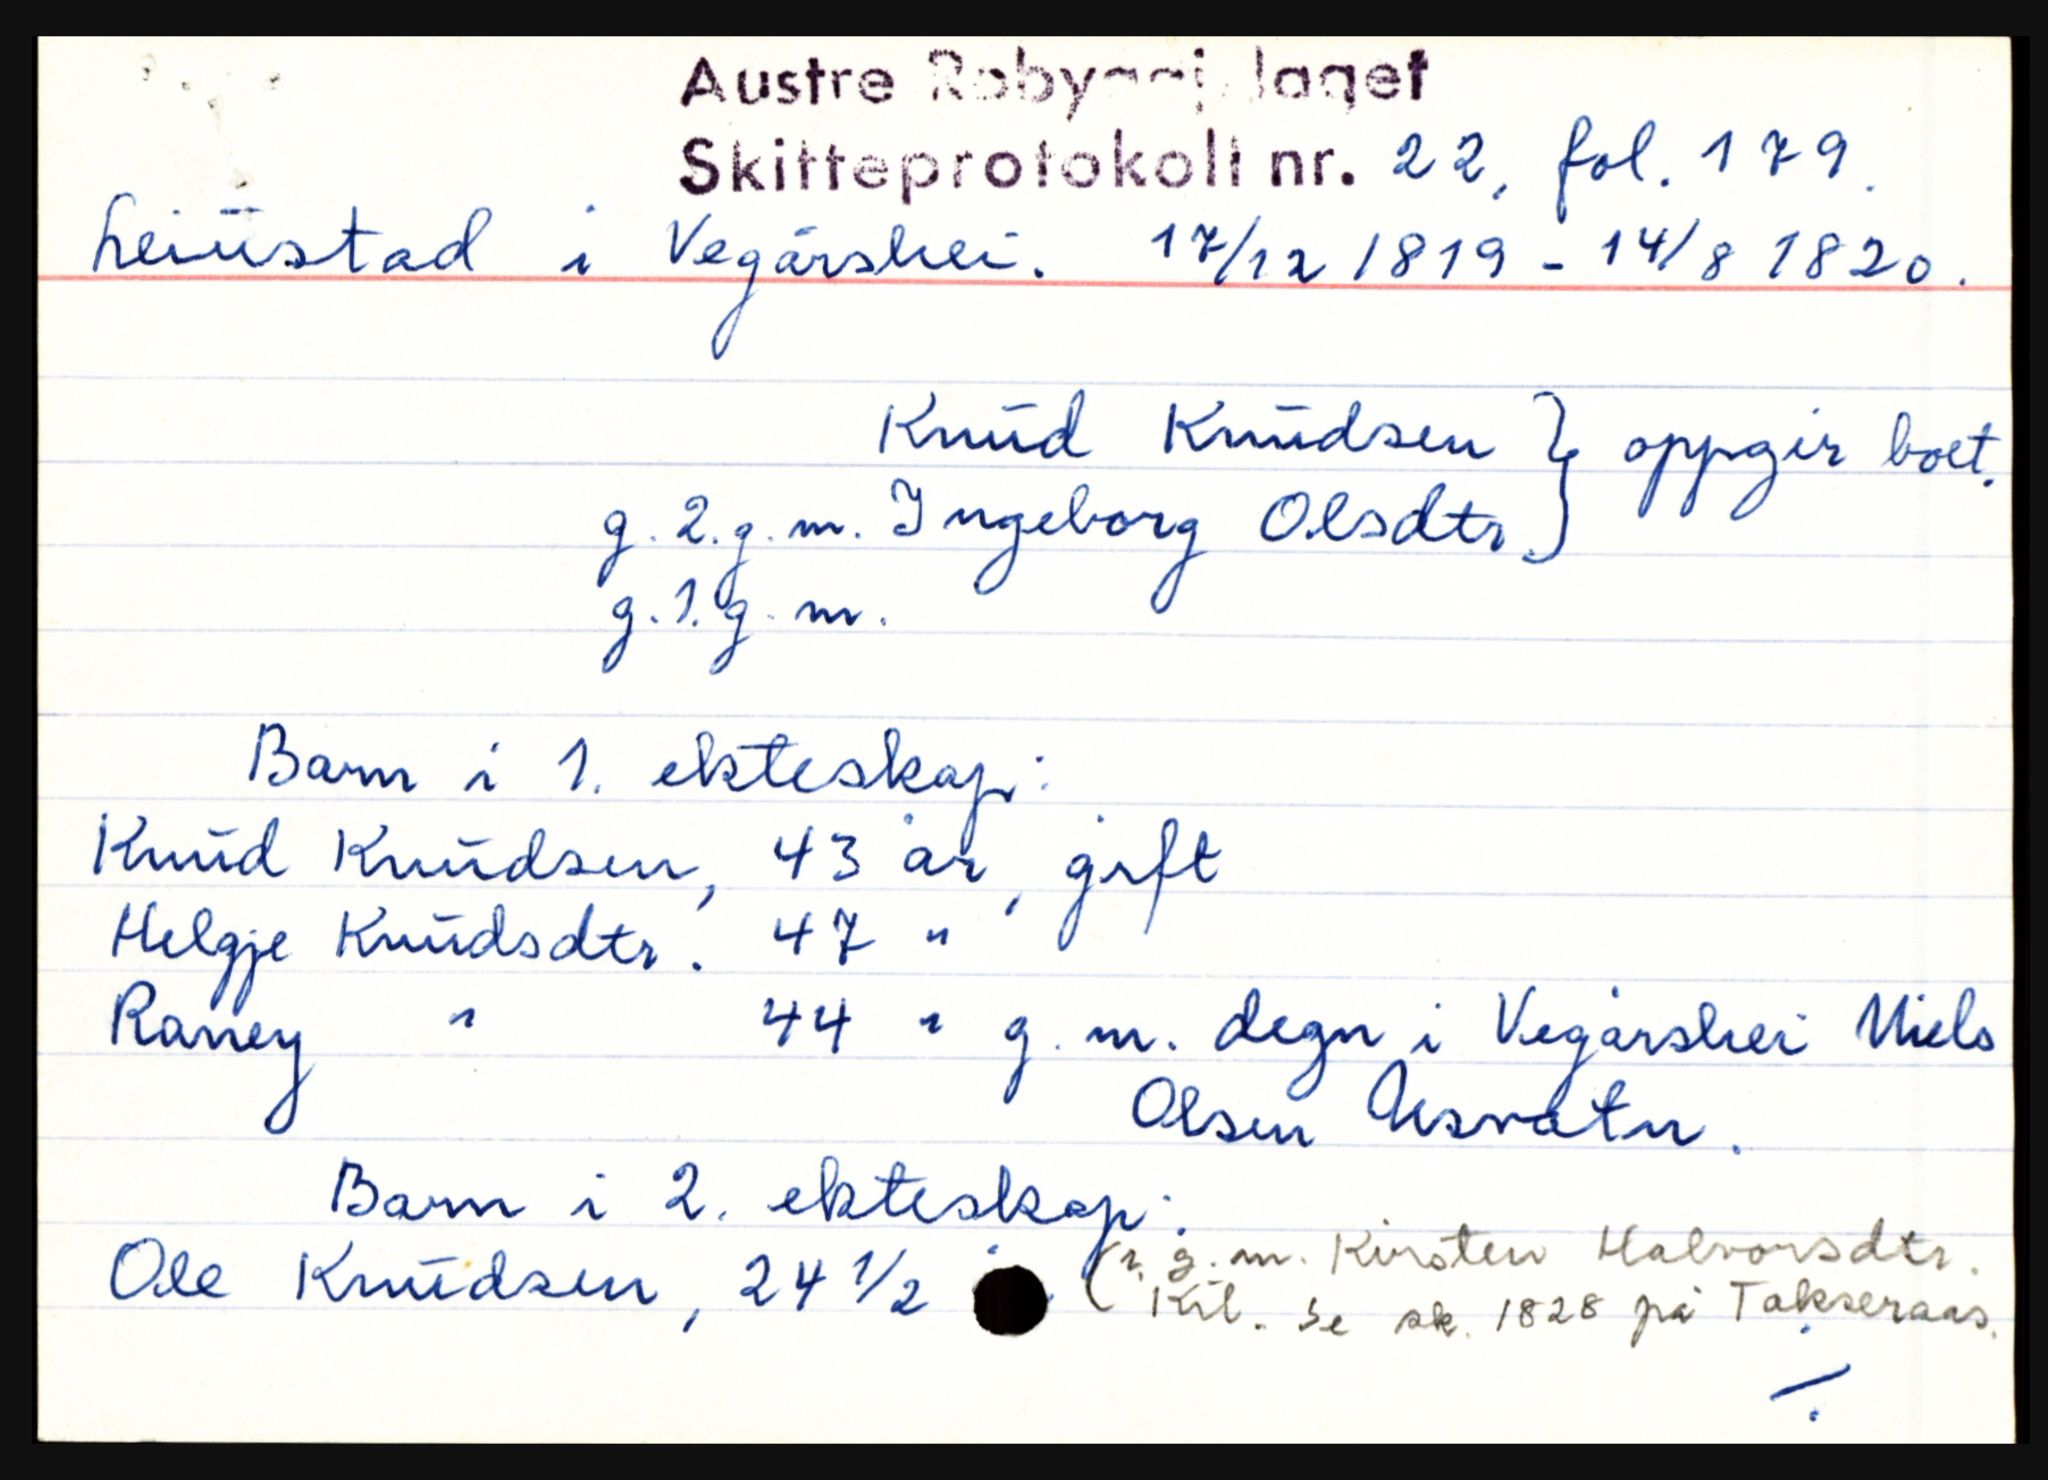 Austre Robyggj.laget
Skifteprotokoll nr. 22, fol. 179.
Leiustad i Vegårshei. 17/12 1819 - 14/8 1820.
Knud Knudsen } oppgir boet.
g. 2. g. m. Ingeborg Olsdtr.
g. 1. g. m.
Barn i 1. ekteskap:
Knud Knudsen, 43 år, gift
Helgje Knudsdtr. 47 "
Raney " 44 " g. m. degn i Vegårshei Niels
Olsen Usvatn.
Barn i 2. ekteskap:
Ole Knudsen, 24 1/2 (1. g. m. Kirsten Halvorsdtr.
Kil. Se sk. 1828 på Takseraas.